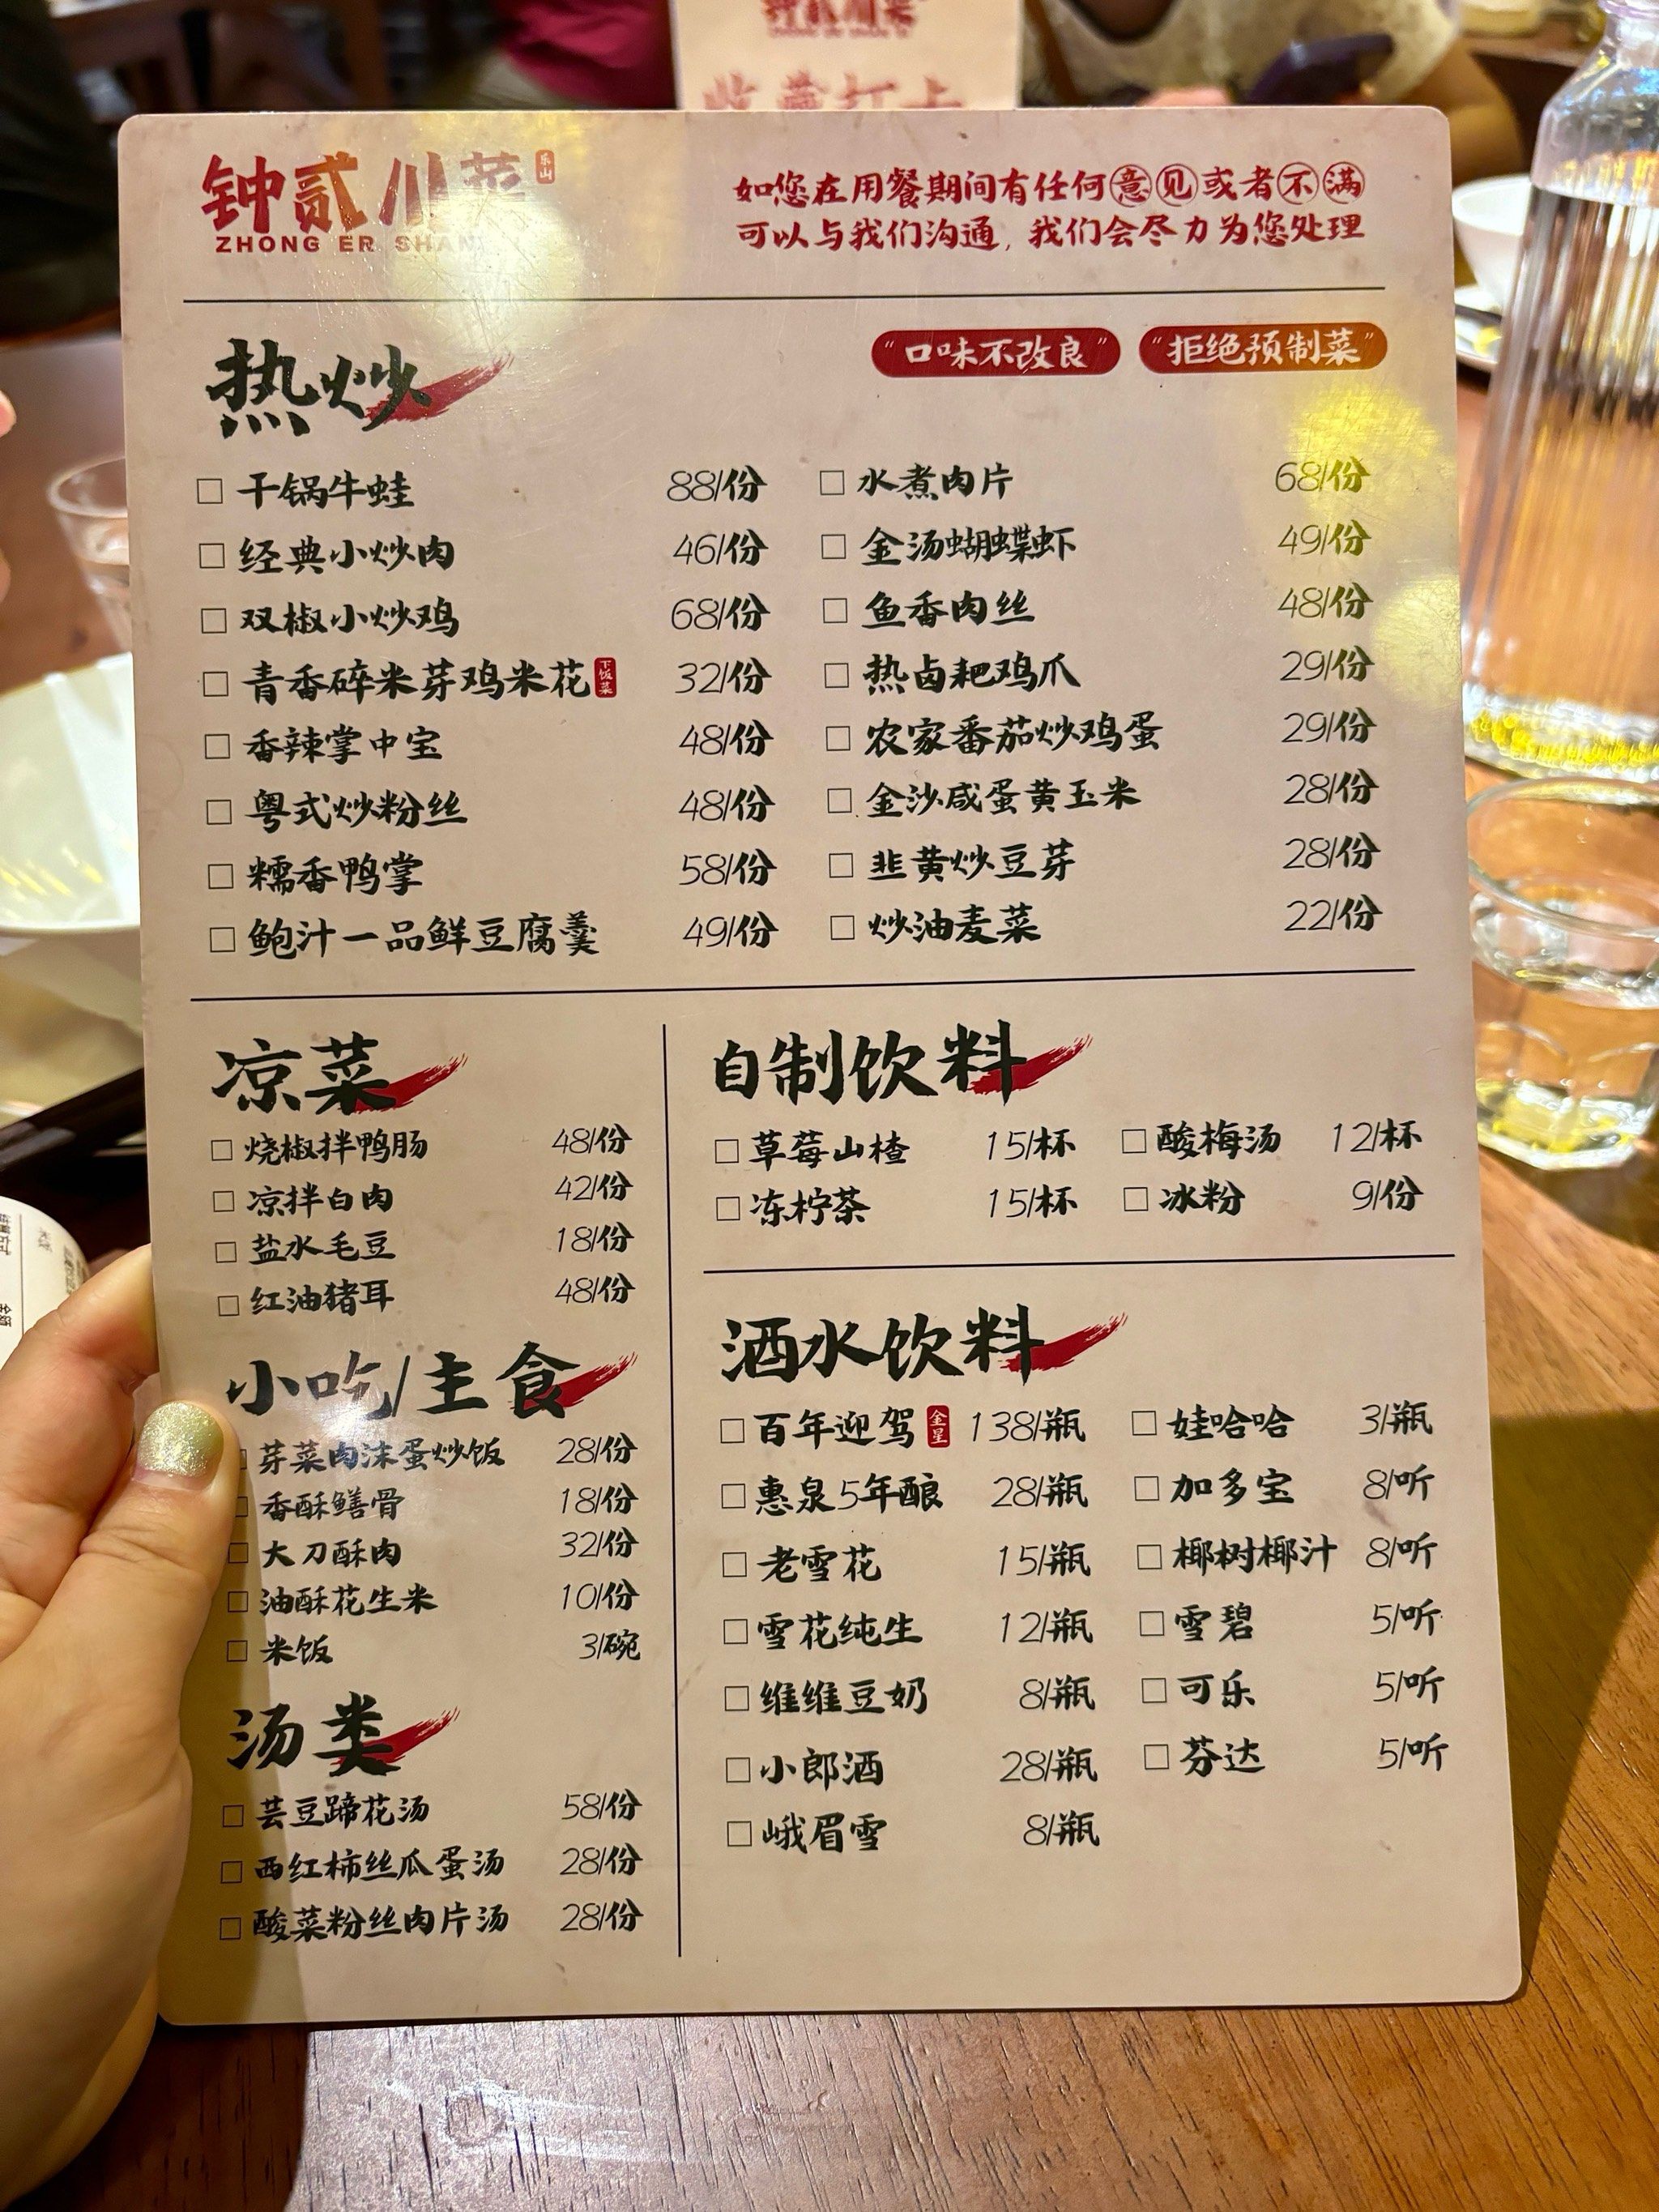 钟贰川菜
乐山
ZHONG ER SHAN
如您在用餐期间有任何意见或者不满
可以与我们沟通,我们会尽力为您处理
热炒
"口味不改良" "拒绝预制菜"
□ 干锅牛蛙 88/份 □ 水煮肉片 68/份
□ 经典小炒肉 46/份 □ 金汤蝴蝶虾 49/份
□ 双椒小炒鸡 68/份 □ 鱼香肉丝 48/份
□ 青香碎米芽鸡米花 下饭菜 32/份 □ 热卤耙鸡爪 29/份
□ 香辣掌中宝 48/份 □ 农家番茄炒鸡蛋 29/份
□ 粤式炒粉丝 48/份 □ 金沙咸蛋黄玉米 28/份
□ 糯香鸭掌 58/份 □ 韭黄炒豆芽 28/份
□ 鲍汁一品鲜豆腐羹 49/份 □ 炒油麦菜 22/份
凉菜
□ 烧椒拌鸭肠 48/份
□ 凉拌白肉 42/份
□ 盐水毛豆 18/份
□ 红油猪耳 48/份
小吃/主食
□ 芽菜肉沫蛋炒饭 28/份
□ 香酥鳝骨 18/份
□ 大刀酥肉 32/份
□ 油酥花生米 10/份
□ 米饭 3/碗
汤类
□ 芸豆蹄花汤 58/份
□ 西红柿丝瓜蛋汤 28/份
□ 酸菜粉丝肉片汤 28/份
自制饮料
□ 草莓山楂 15/杯 □ 酸梅汤 12/杯
□ 冻柠茶 15/杯 □ 冰粉 9/份
酒水饮料
□ 百年迎驾 金星 138/瓶 □ 娃哈哈 3/瓶
□ 惠泉5年酿 28/瓶 □ 加多宝 8/听
□ 老雪花 15/瓶 □ 椰树椰汁 8/听
□ 雪花纯生 12/瓶 □ 雪碧 5/听
□ 维维豆奶 8/瓶 □ 可乐 5/听
□ 小郎酒 28/瓶 □ 芬达 5/听
□ 峨眉雪 8/瓶